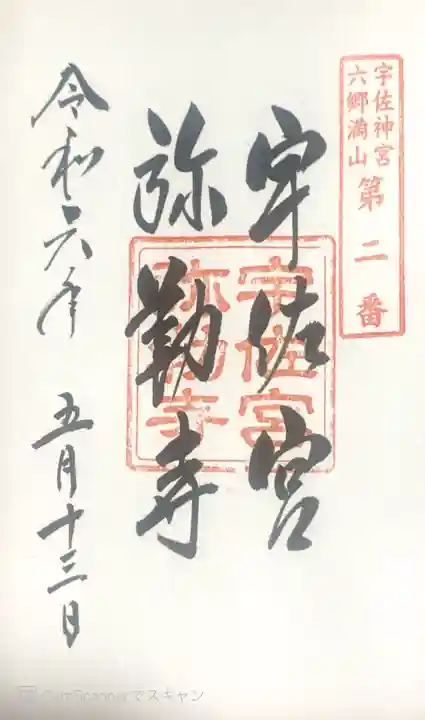 宇佐神宮
六郷満山
第二番
宇佐宮
弥勒寺
宇佐宮
弥勒寺
令和六年 五月十三日
CamScannerでスキャン